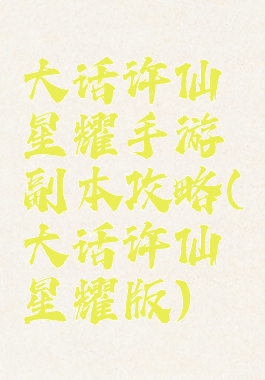 大话许仙
星耀手游
副本攻略(
大话许仙
星耀版)